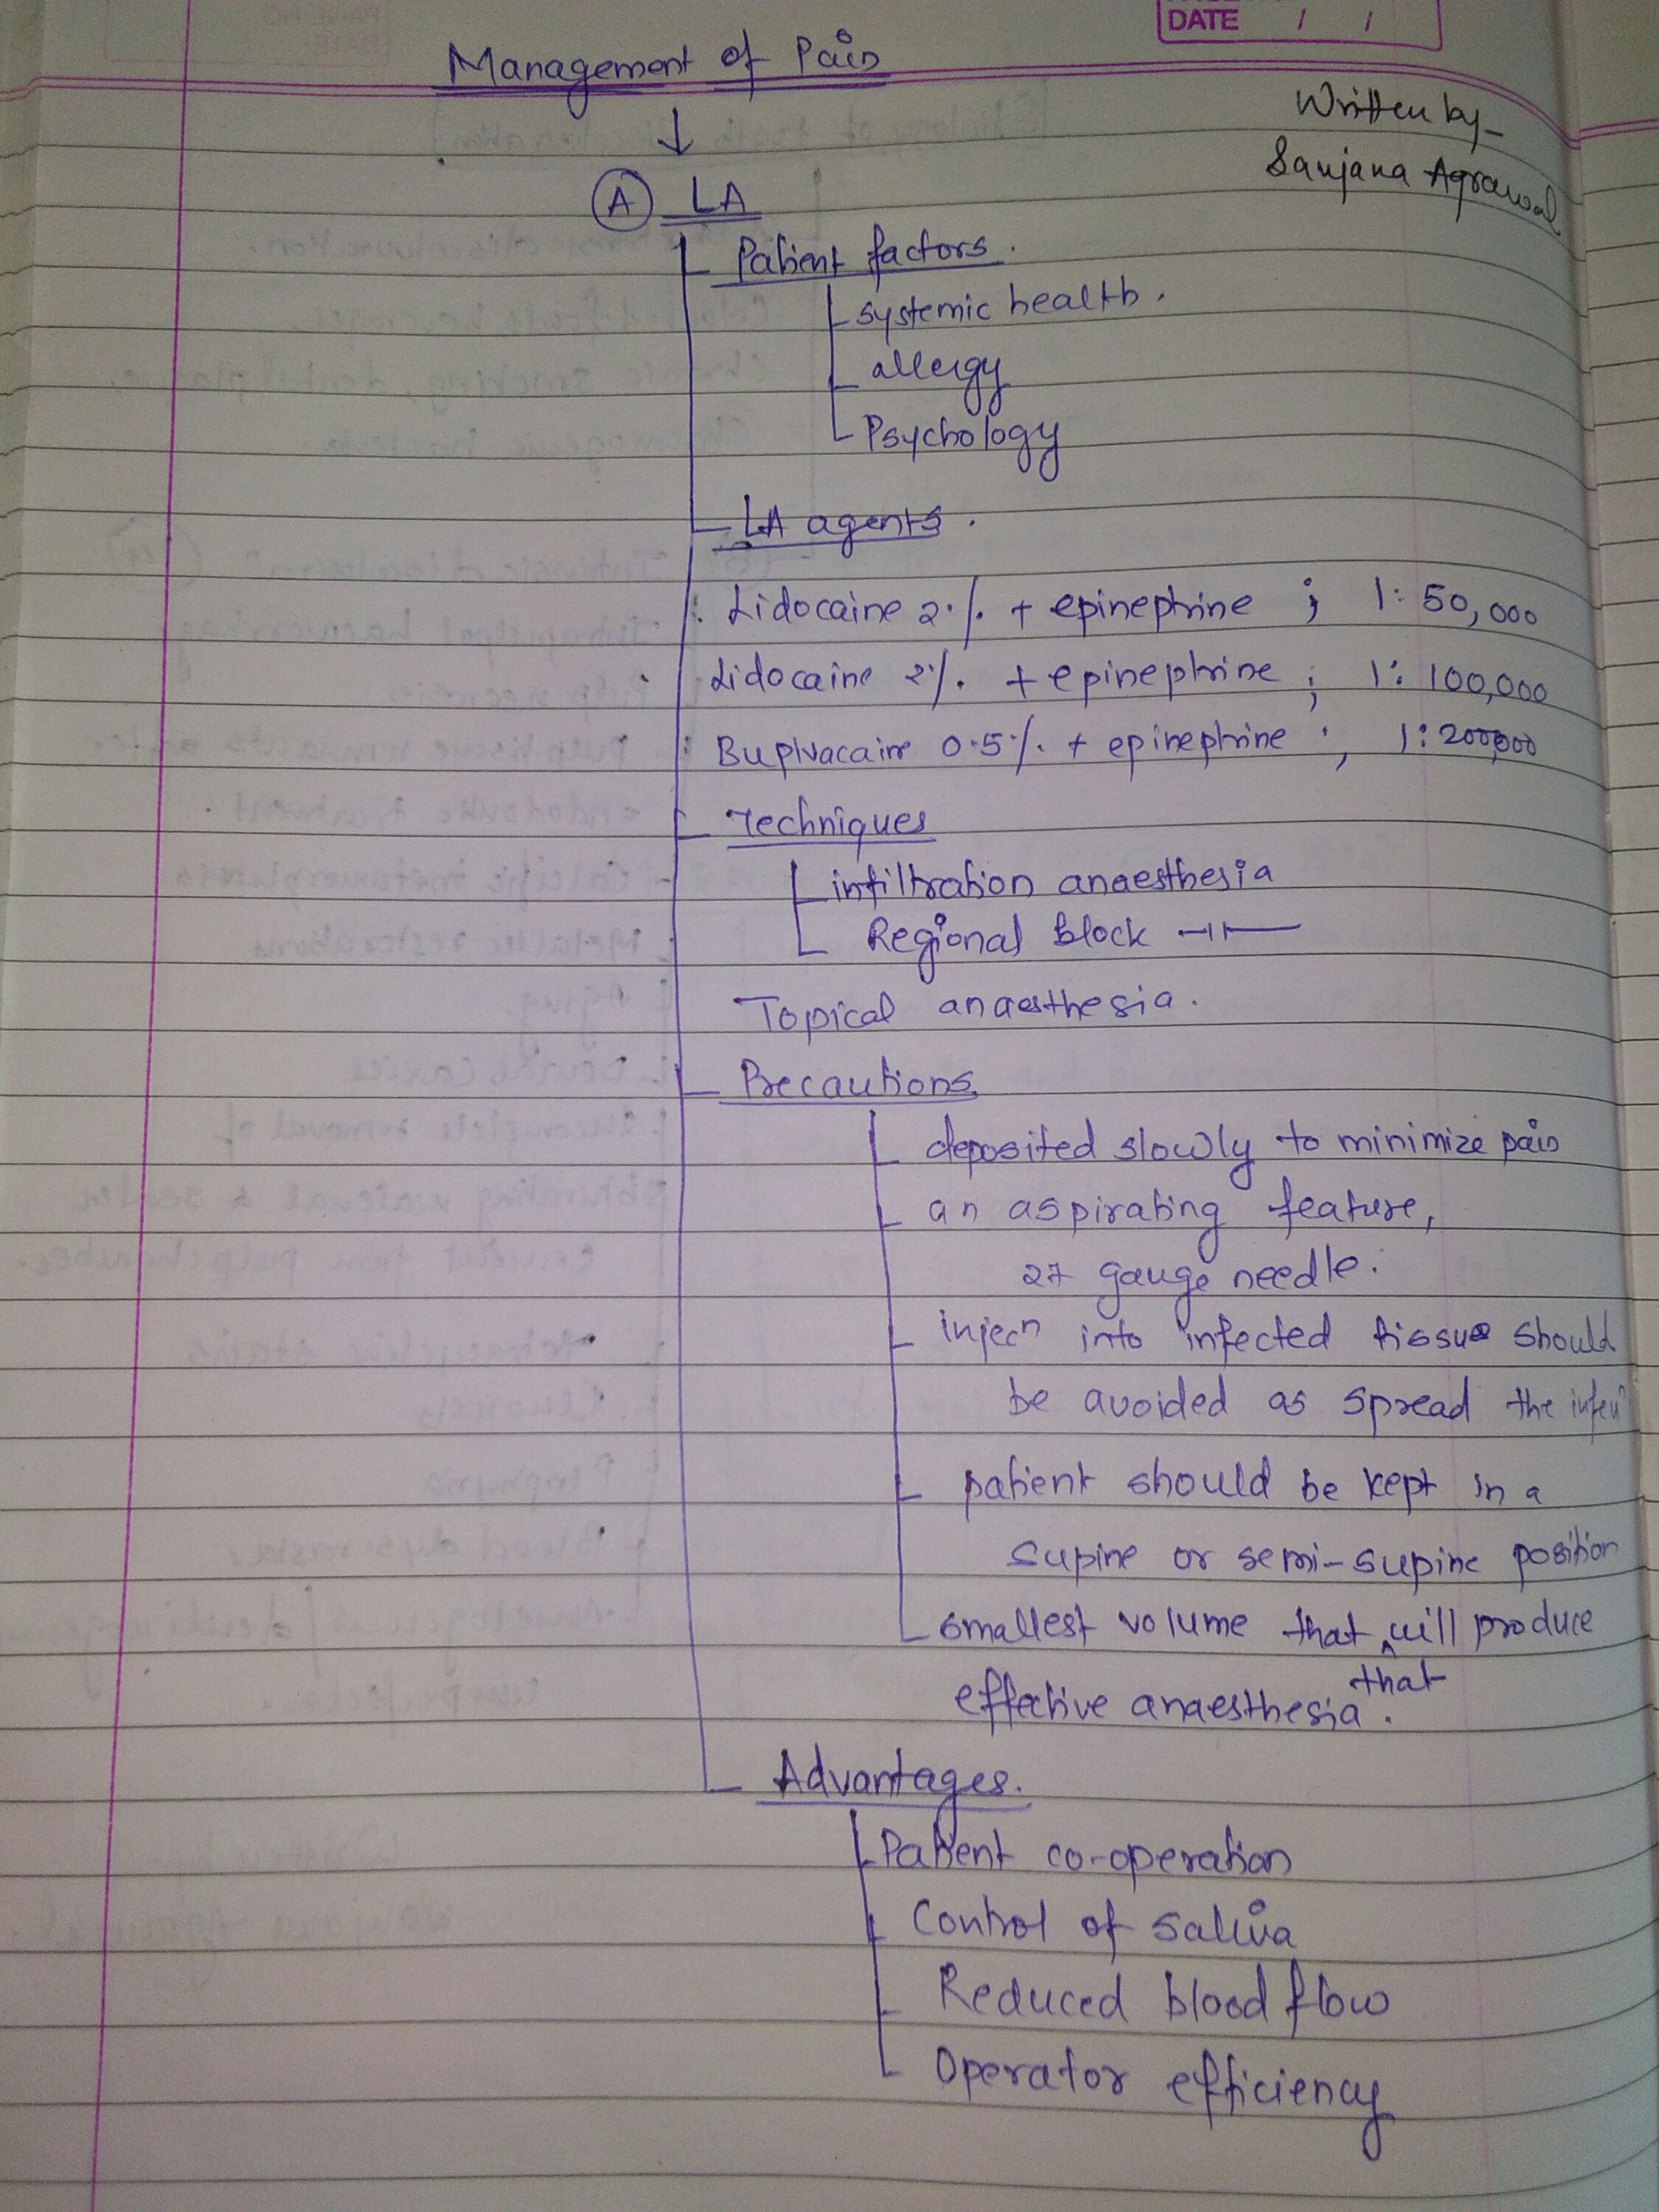 DATE / /
Management of Pain
Written by-
Sanjana Agrawal
A LA
Patient factors.
systemic health.
allergy
Psychology
LA agents.
Lidocaine 2% + epinephrine ; 1: 50,000
Lidocaine 2% + epinephrine ; 1: 100,000
Bupivacaine 0.5% + epinephrine ; 1: 200,000
Techniques
infiltration anaesthesia
Regional Block -11-
Topical anaesthesia.
Precautions
deposited slowly to minimize pain
an aspirating feature,
27 gauge needle.
injecn into infected tissue should
be avoided as spread the infecn
patient should be kept in a
supine or semi-supine position
smallest volume that will produce
that
effective anaesthesia.
Advantages.
Patient co-operation
Control of saliva
Reduced blood flow
Operator efficiency